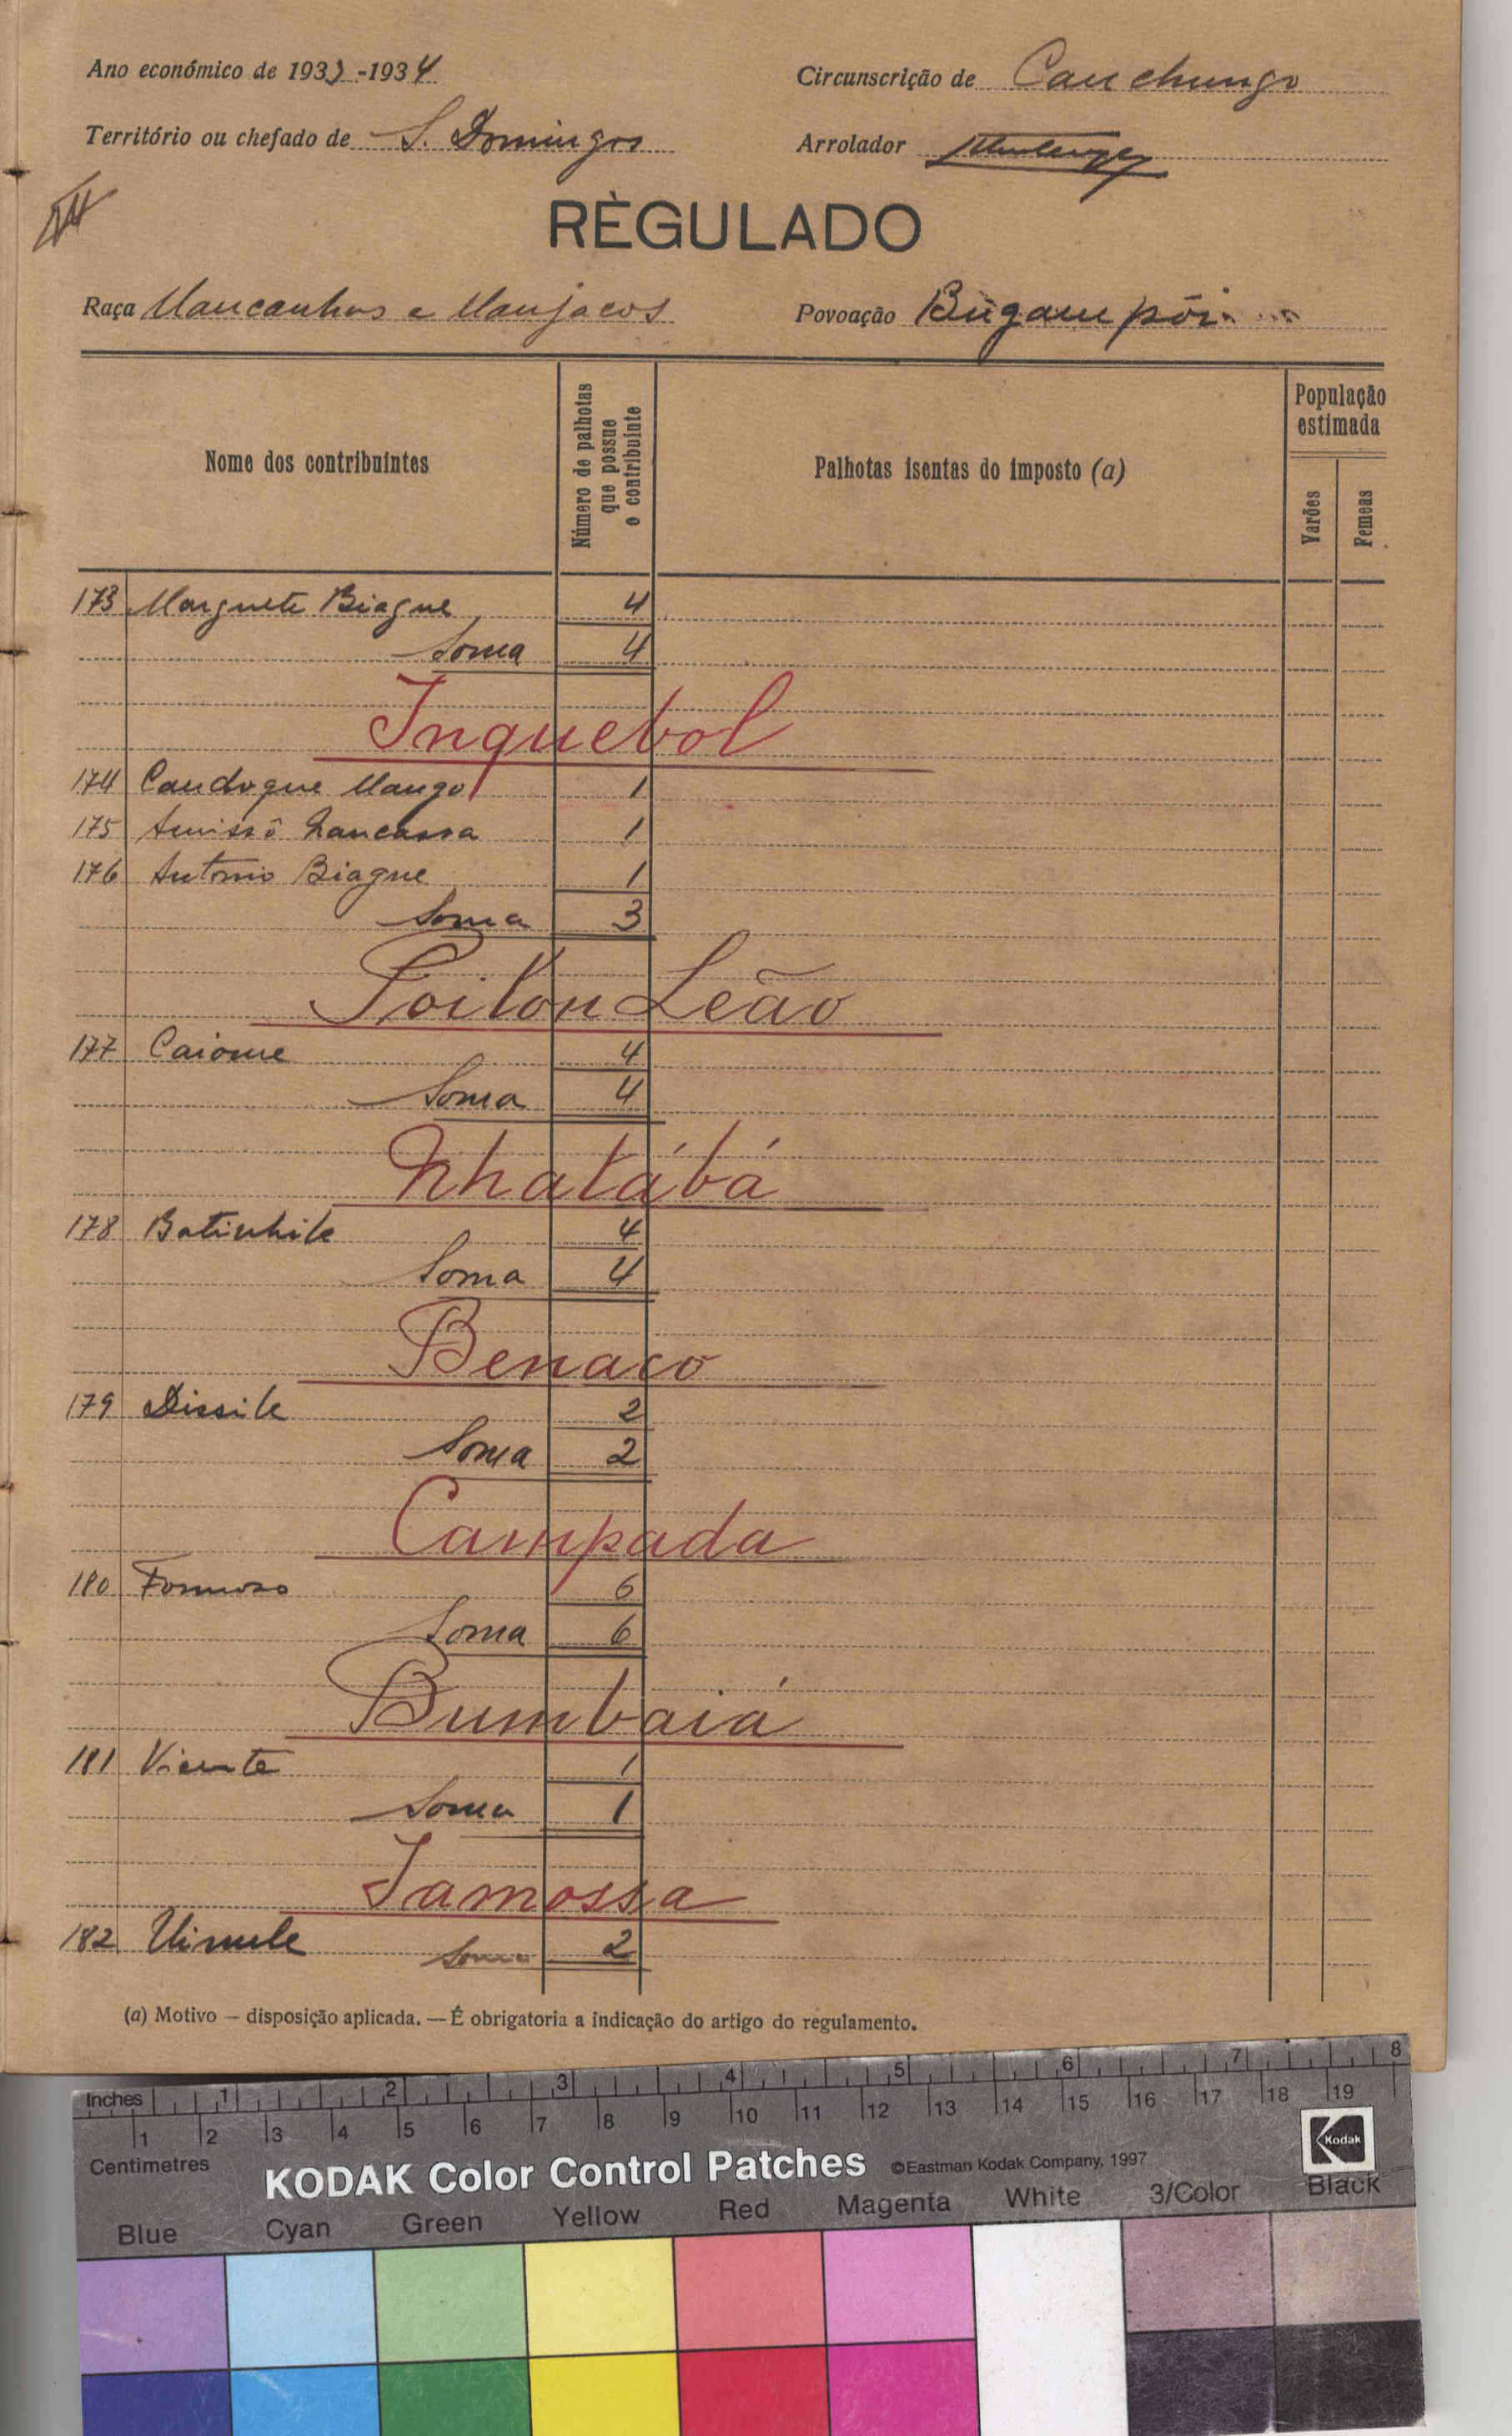 Ano económico de 1933-1934
Circunscrição de Canchungo
Território ou chefado de S. Domingos
Arrolador
RÈGULADO
Raça Mancanhas e Manjacos
Povoação Bugampór
Nome dos contribuintes
Número de palhotas que possue o contribuinte
Palhotas isentas do imposto (a)
População estimada
Varões
Femeas
173 Marguete Biague 4
Soma 4
Inquebol
174 Candoque Mango 1
175 Amissô Nancassa 1
176 Antonio Biague 1
Soma 3
Poilon Leão
177 Caiome 4
Soma 4
Nhatábá
178 Batinhile 4
Soma 4
Benaco
179 Dissile 2
Soma 2
Campada
180 Formoso 6
Soma 6
Bumbaiá
181 Vicente 1
Soma 1
Jamossa
182 Uimule Soma 2
(a) Motivo — disposição aplicada. — É obrigatoria a indicação do artigo do regulamento.
Inches 1 2 3 4 5 6 7 8
1 2 3 4 5 6 7 8 9 10 11 12 13 14 15 16 17 18 19
Centimetres
KODAK Color Control Patches ©Eastman Kodak Company, 1997
Kodak
Blue Cyan Green Yellow Red Magenta White 3/Color Black